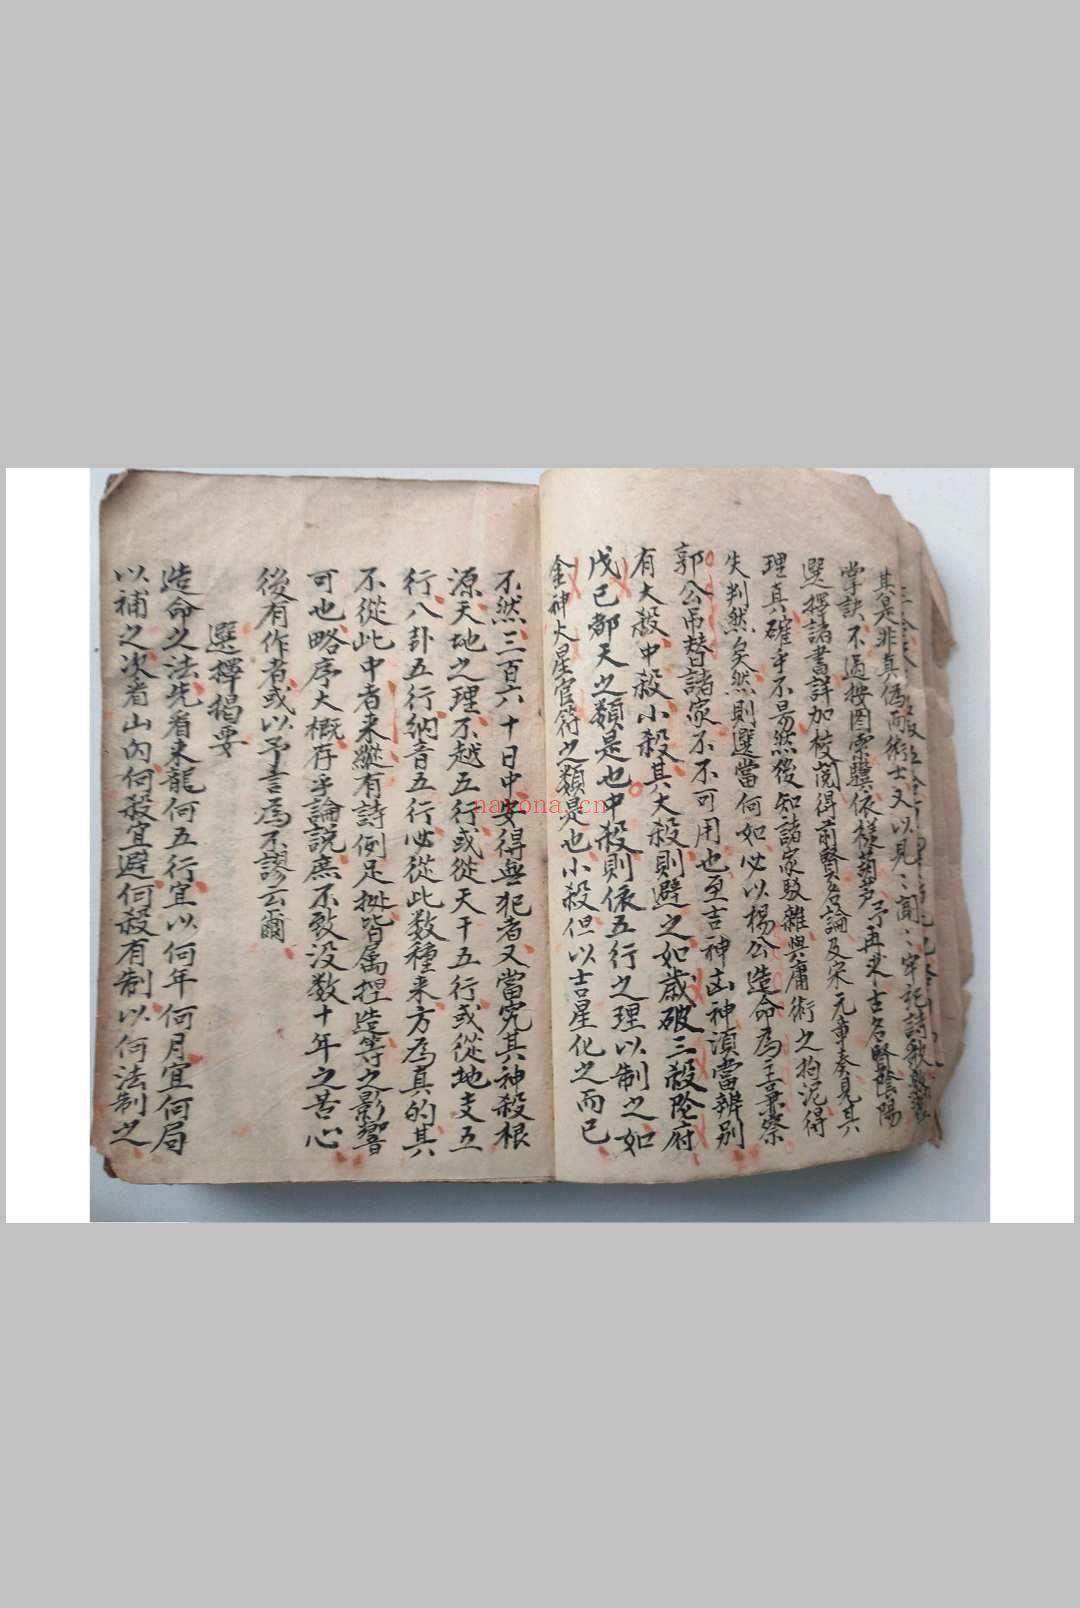 其是非真偽而術士又以見〻聞〻牢記詩歌
掌訣不過按图索驥依樣葫芦予再求古名賢陰陽
選擇諸書詳加校閱得前賢名論及宋元事奏見其
理真確乎不易然後知諸家駁雜與庸術之拘泥得
失判然矣然則選當何如必以楊公造命為主兼察
郭公吊替諸家不不可用也至吉神凶神湏當辨别
有大殺中殺小殺其大殺則避之如歲破三殺陰府
戊己都天之類是也中殺則依五行之理以制之如
金神火星官符之類是也小殺但以吉星化之而已
不然三百六十日中安得無犯者又當究其神殺根
源天地之理不越五行或從天干五行或從地支五
行八卦五行納音五行必從此数種来方為真的其
不從此中者来縱有詩例足撚皆属捏造等之影響
可也略序大概存乎論説庶不致没数十年之苦心
後有作者或以予言為不謬云爾
選擇揭要
造命之法先看来龍何五行宜以何年何月宜何局
以補之次看山内何殺宜避何殺有制以何法制之
nayona.cn